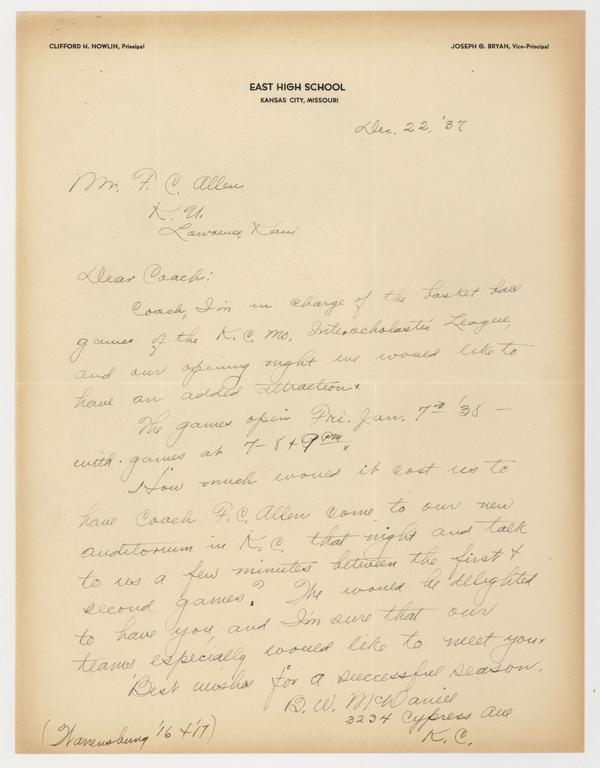 CLIFFORD H. NOWLIN, Principal
JOSEPH G. BRYAN, Vice-Principal
EAST HIGH SCHOOL
KANSAS CITY, MISSOURI
Dec. 22, '37
Mr. F. C. Allen
K. U.
Lawrence, Kans
Dear Coach:
Coach, I'm in charge of the basket ball
games of the K.C. Mo. Interscholastic League,
and our opening night we would like to
have an added attraction.
The games open Fri. Jan. 7th '38 -
with games at 7-8 + 9 PM.
How much would it cost us to
have Coach F.C. Allen come to our new
auditorium in K.C. that night and talk
to us a few minutes between the first +
second games? The would be delighted
to have you, and I'm sure that our
teams especially would like to meet you.
Best wishes for a successful season.
B. W. McDaniel
3234 Cypress Ave
K.C.
(Warrensburg '16 + '17)